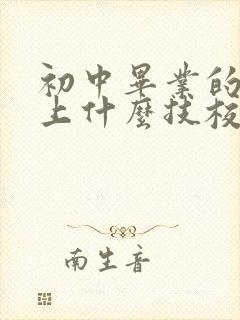 初中畢業的
上什麼技校
南生音